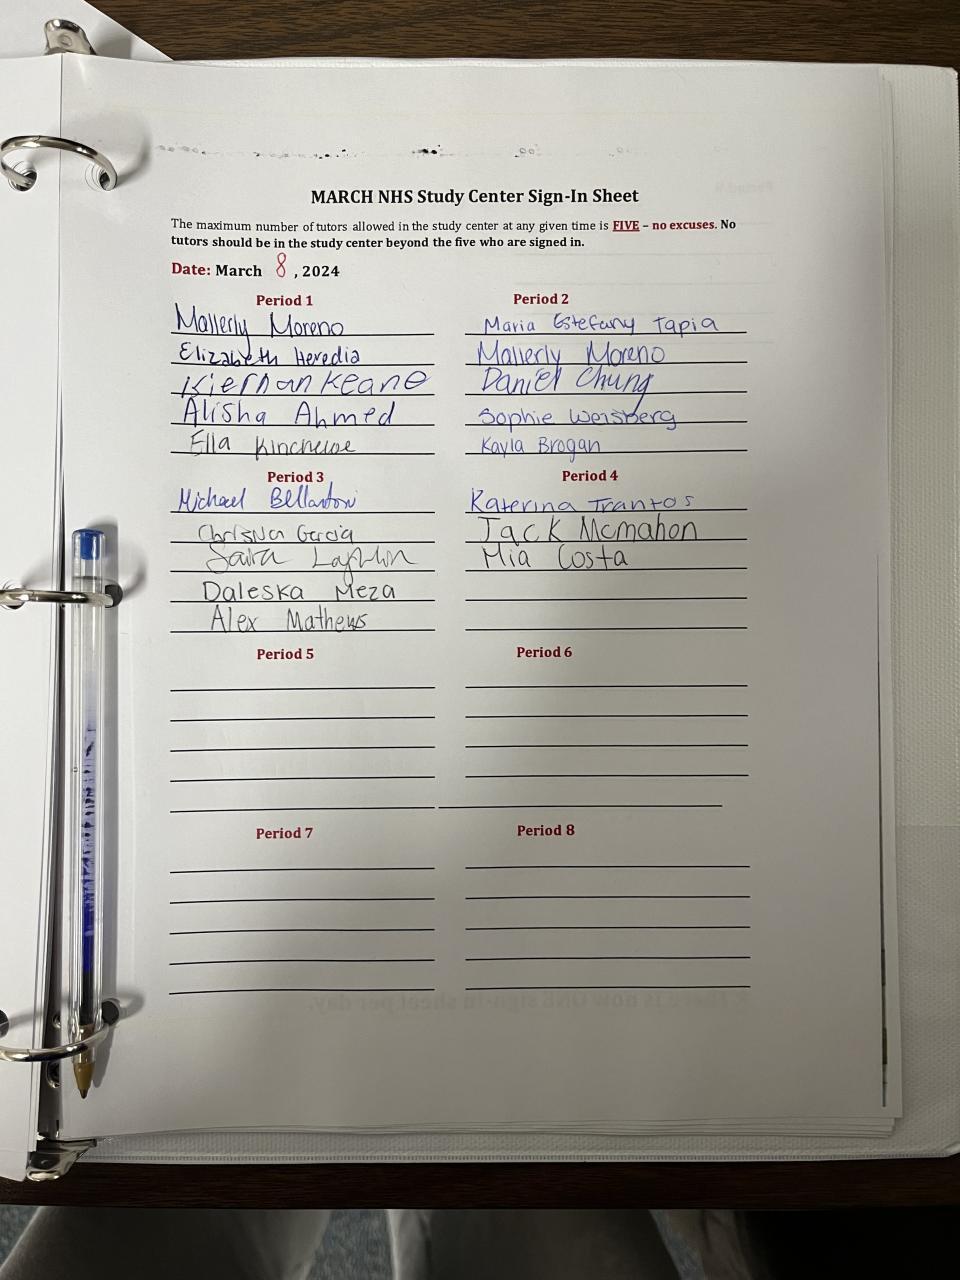 MARCH NHS Study Center Sign-In Sheet
The maximum number of tutors allowed in the study center at any given time is FIVE – no excuses. No
tutors should be in the study center beyond the five who are signed in.
Date: March 8, 2024
Period 1
Mallerly Moreno
Elizabeth Heredia
Kiernan Keane
Alisha Ahmed
Ella
Period 2
Maria Estefany Tapia
Mallerly Moreno
Daniel Chung
Sophie Weisberg
Kayla Brogan
Period 3
Michael
Garcia
Sara
Daleska Meza
Alex Mathews
Period 4
Katerina Trantos
Jack Mcmahon
Mia Costa
Period 5
Period 6
Period 7
Period 8